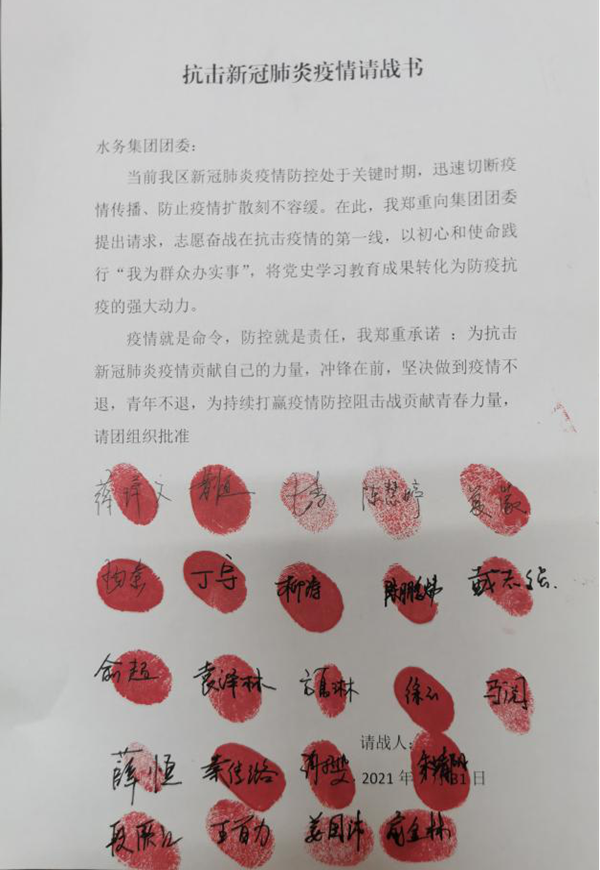 抗击新冠肺炎疫情请战书
水务集团团委：
当前我区新冠肺炎疫情防控处于关键时期，迅速切断疫
情传播、防止疫情扩散刻不容缓。在此，我郑重向集团团委
提出请求，志愿奋战在抗击疫情的第一线，以初心和使命践
行“我为群众办实事”，将党史学习教育成果转化为防疫抗
疫的强大动力。
疫情就是命令，防控就是责任，我郑重承诺 ：为抗击
新冠肺炎疫情贡献自己的力量，冲锋在前，坚决做到疫情不
退，青年不退，为持续打赢疫情防控阻击战贡献青春力量，
请团组织批准
陈慧婷
丁宁 柳涛 陈鹏炜
俞超 袁泽林
请战人：
薛恒
2021 年 31 日